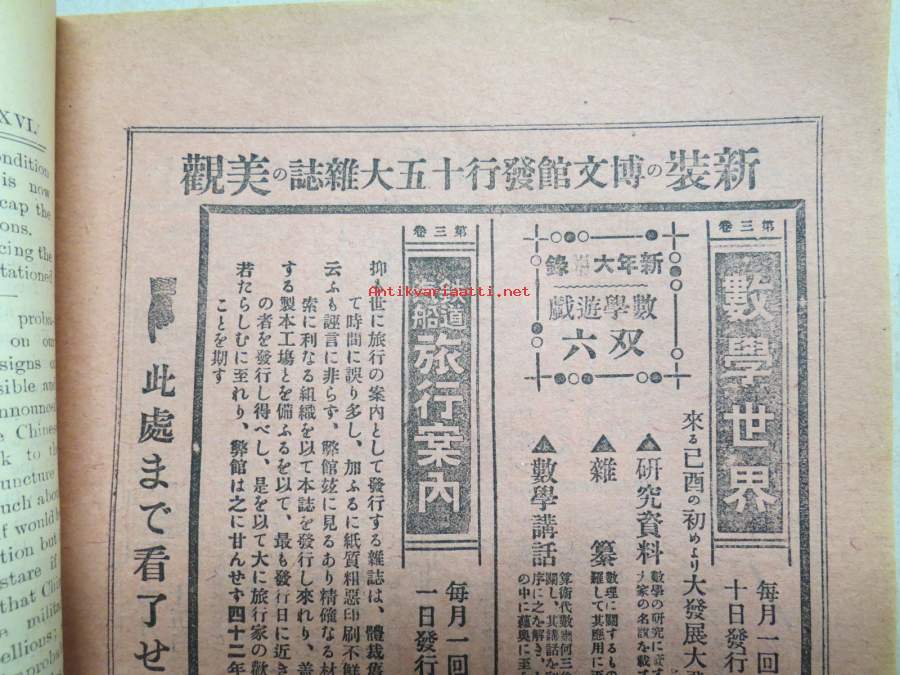 新装の博文館發行十五大雜誌の美觀
第三卷
數學世界
每月一回
十日發行
新年大附錄
數學遊戲
双六
來る己酉の初めより大發展大
▲研究資料
數學の研究に
大家の名說を載
▲雜纂
數理に關するも
羅して其應用に
▲數學講話
算術代數幾何三
關し、其講話を
序に之を解き、
の中に蘊奧に至
第三卷
鐵道
旅行案內
每月一回
一日發行
抑も世に旅行の案內として發行する雜誌は、體裁
て時間に誤り多し、加ふるに紙質粗惡印刷不鮮
云ふも誣言に非らす、弊館玆に見るあり精確なる材
索に利なる組織を以て本誌を發行し來れり、善
する製本工塲とを備ふるを以て、最も發行日に近き
の者を發行し得べし、是を以て大に旅行家の歡
若たらしむに至れり、弊館は之に甘んせす四十二年
ことを期す
此處まで看了せ
XVI.
ondition
is now
cap the
ons.
cing the
tationed
proba-
on our
signs or
sible and
nnounced
e Chinese
k to the
uncture
uch about
if would b
tion but
stare if
that Chin
e milita
ellious;
Antikvariaatti.net